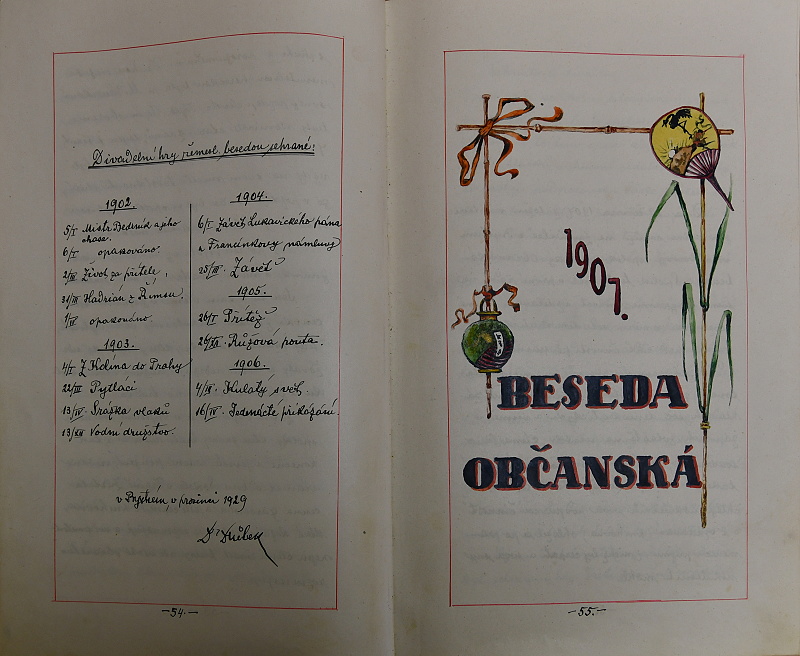 Divadelní hry řemesl. besedou sehrané:
1902.
5/I Mistr Bedrník a jeho
chasa.
6/I opakováno.
2/II Život za přítele,
31/III Hadrián z Římsu.
1/IV opakováno.
1903.
4/I Z Kolína do Prahy
22/III Pytláci
13/IV. Srážka vlaků
13/XII Vodní družstvo.
1904.
6/I Závěť Lukavického pána
a Francinkovy námluvy
25/III. Závěť
1905.
26/I Přítěž
26/XII. Růžová pouta.
1906.
4/II. Kulatý svět.
16/IV. Jedenácté přikázání.
v prosinci 1929
-54.-
1907.
BESEDA
OBČANSKÁ
-55.-